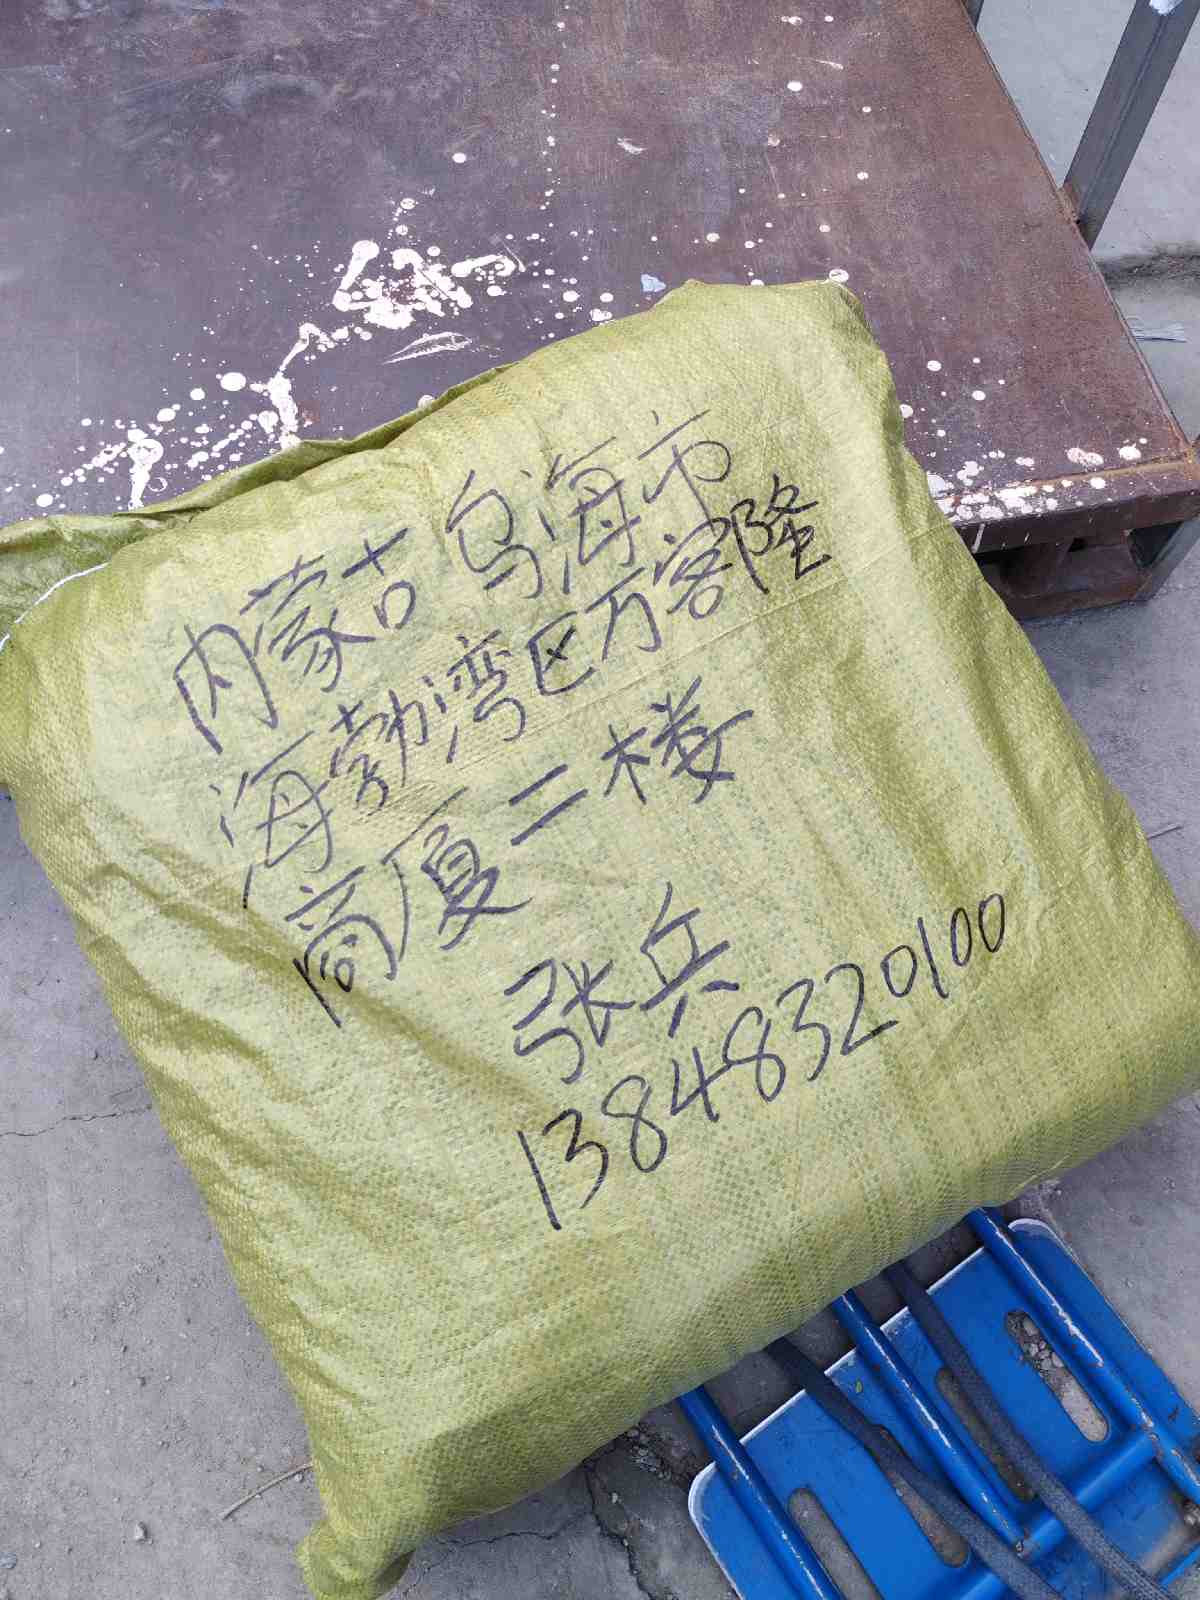 内蒙古乌海市
海勃湾区万客隆
商厦二楼
张兵
13848320100